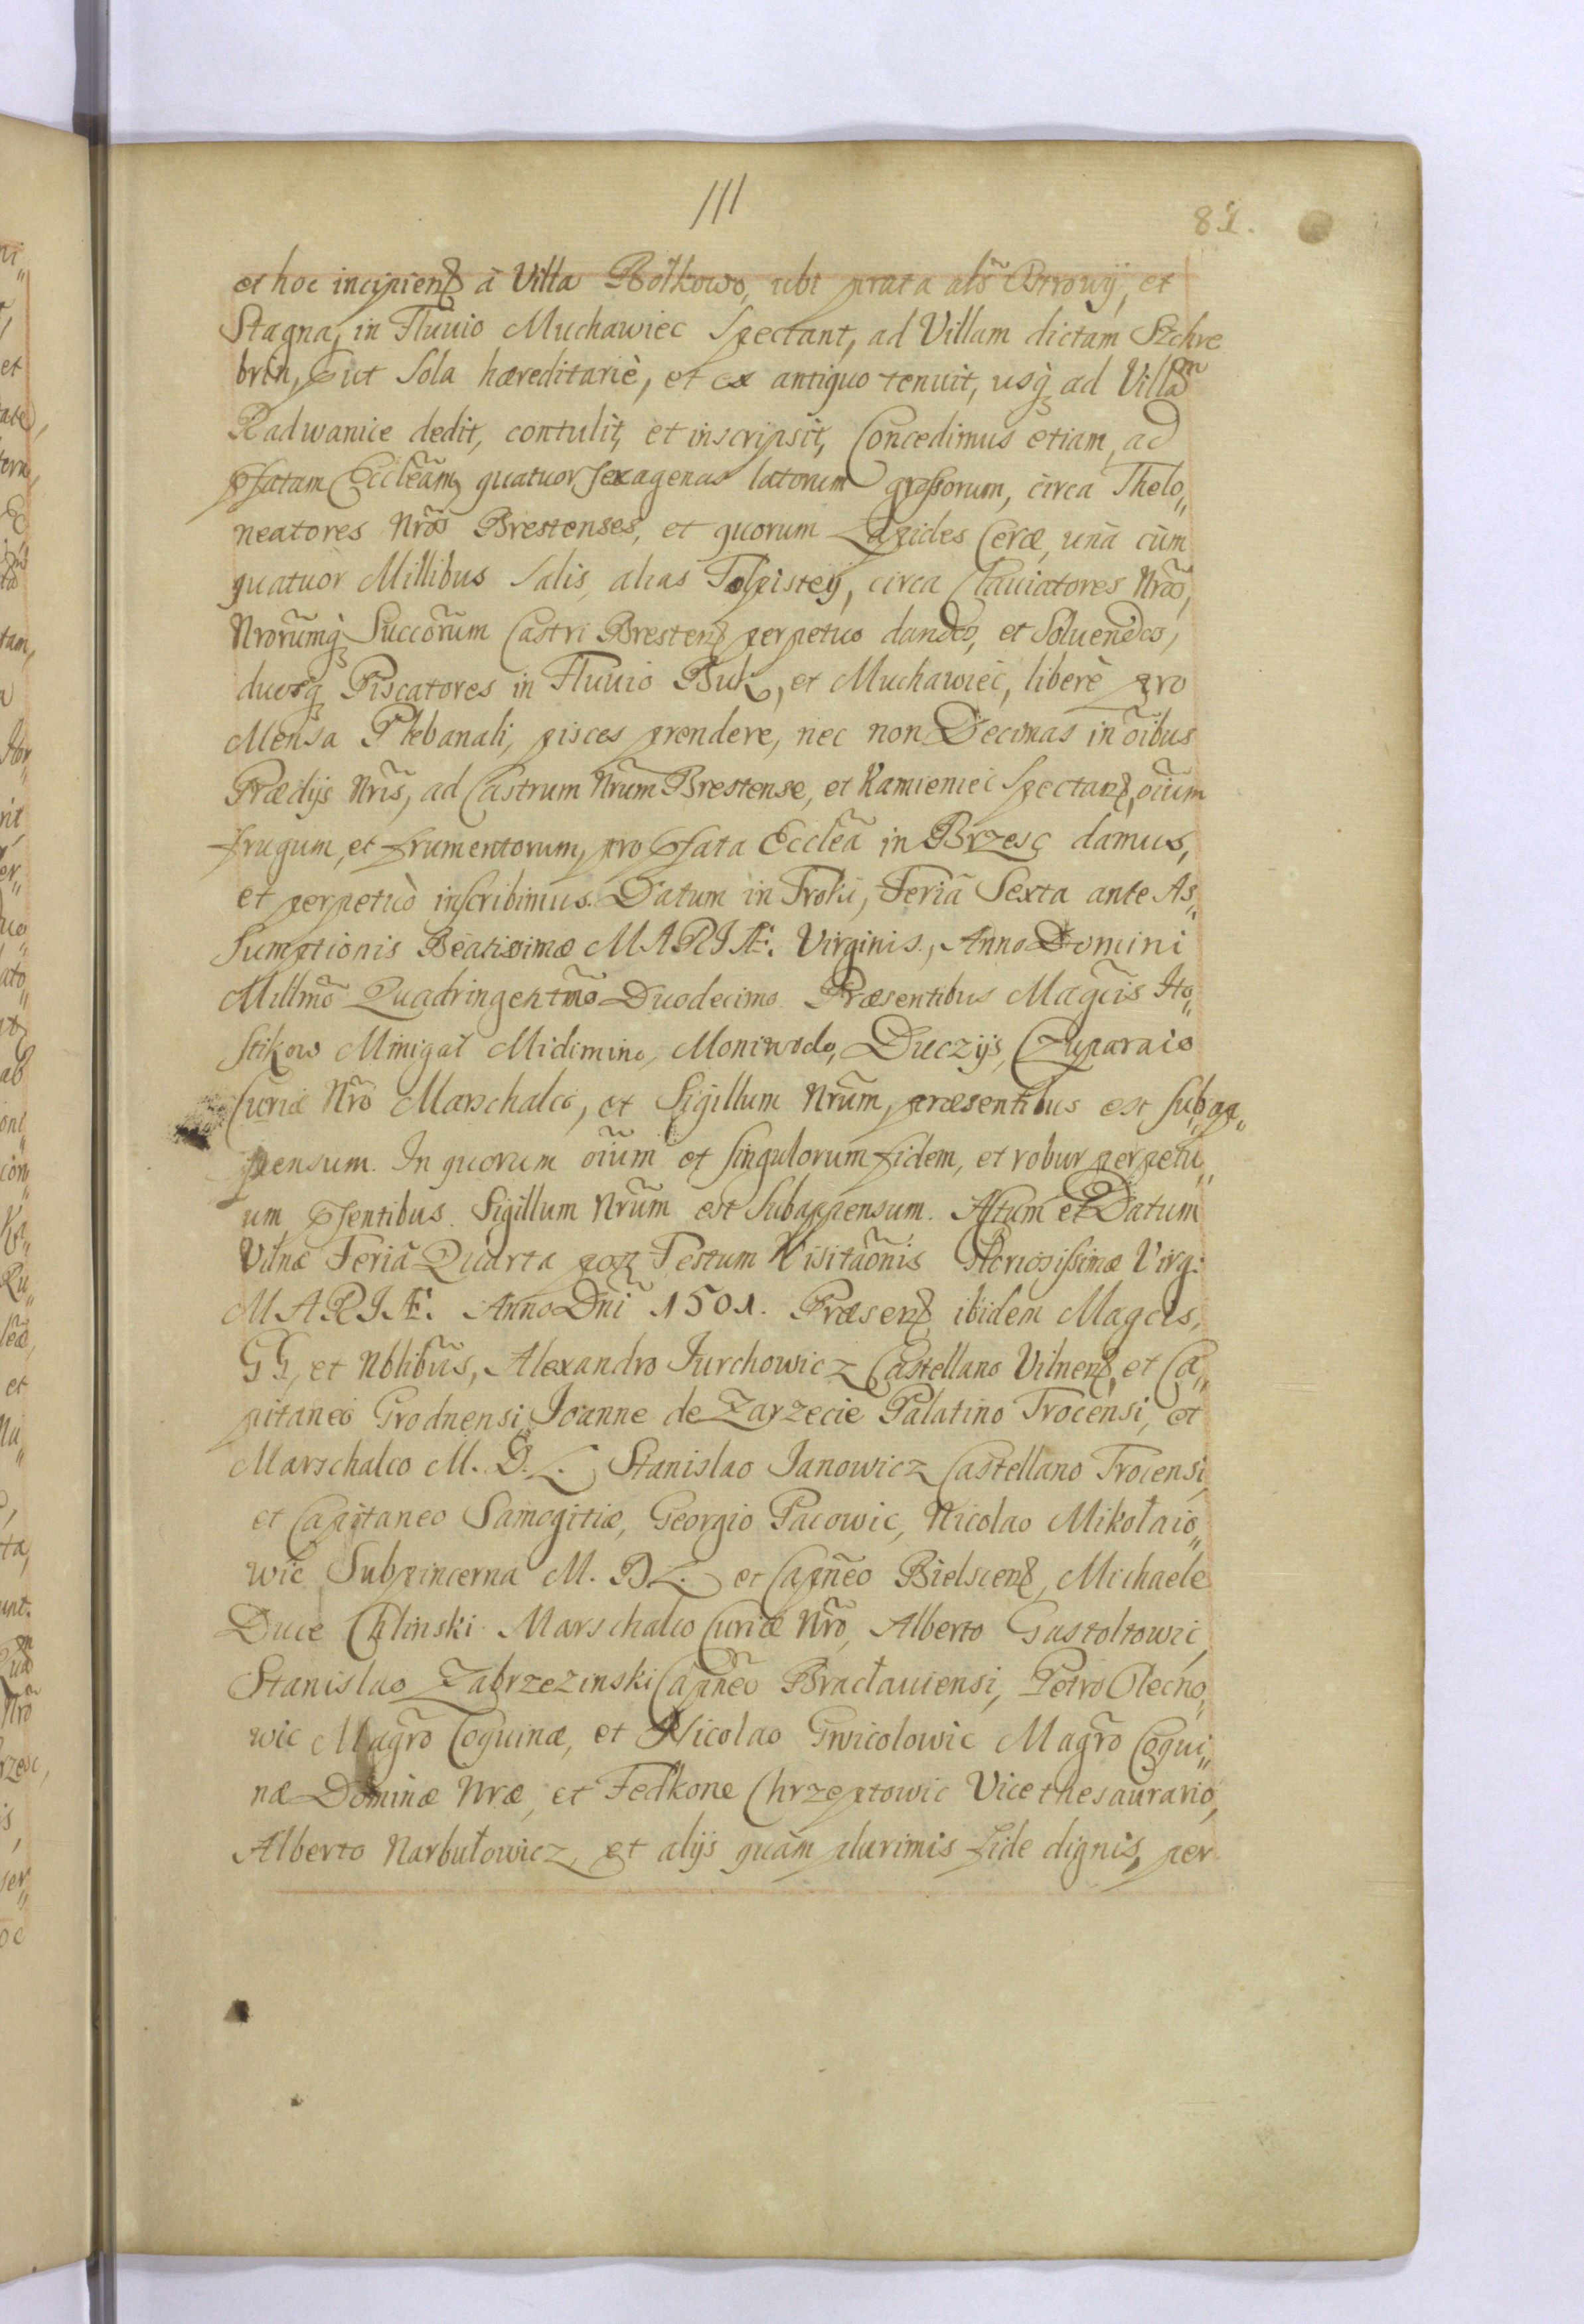 111
81.
et hoc incipien à Villa Bolkowo, ubi prata als Ostrowij, et
Stagna, in Fluuio Muchawiec Spectant, ad Villam dictam Szchre
brin, put Sola hæreditariè, et ex antiquo tenuit, usq ad Villam
Radwanice dedit, contulit, et inscripsit, Concedimus etiam, ad
pfatam Eccleam, quatuor sexagenas latorum grossorum, circa Thelo„
neatores Nros Brestenses, et quorum Lapides Ceræ, unà cùm
quatuor Millibus Salis, alias Tolpistej, circa Clauiatores Nros,
Nrorumq Succorum Castri Bresten perpetuo dandos, et Soluendos,
duosq Piscatores in Fluuio Buk, et Muchawiec, liberè pro
Mensa Plebanali, pisces prendere, nec non Decimas in oibus
Prædijs Nris, ad Castrum Nrum Brestense, et Kamieniec Spectan, oium
frugum, et frumentorum, pro pfata Ecclea in Brzesc damus,
et perpetuò inscribimus. Datum in Troki, Feria Sexta ante As„
Sumptionis Beatissimæ MARIÆ. Virginis, Anno Domini
Millmo Quadringentmo Duodecimo Præsentibus Magcis Ho„
stikow Minigal Midimino, Moniwodo, Duczijs, Czuparaio
Curiæ Nro Marschalco, et Sigillum Nrum, præsentibus est subap„
pensum. In quorum oium et singulorum fidem, et robur perpetu„
um psentibus. Sigillum Nrum est Subappensum. Actum et Datum
Vilnæ Feria Quarta post Festum Visitaonis Gloriosissimæ Virg:
MARIÆ. Anno Dni 1501. Præsen ibidem Magcis,
GG, et Nblibus, Alexandro Jurchowicz Castellano Vilnen, et Ca„
pitaneo Grodnensi, Joanne de Zarzecie Palatino Trocensi, et
Marschalco M. D. L. Stanislao Janowicz Castellano Trocensi,
et Capitaneo Samogitiæ, Georgio Pacowic, Nicolao Mikołaio„
wic Subpincerna M. D L. et Capneo Bielscen, Michaele
Duce Chlinski Marschalco Curiæ Nro, Alberto Gastoltowic,
Stanislao Zabrzezinski Capneo Bracławiensi, Petro Olechno„
wic Magro Coquinæ, et Nicolao Gwicolowic Magro Coqui„
næ Dominæ Nræ, et Fedkone Chrzeptowic Vicethesaurario,
Alberto Narbutowicz, et alijs quàm plurimis fide dignis, per